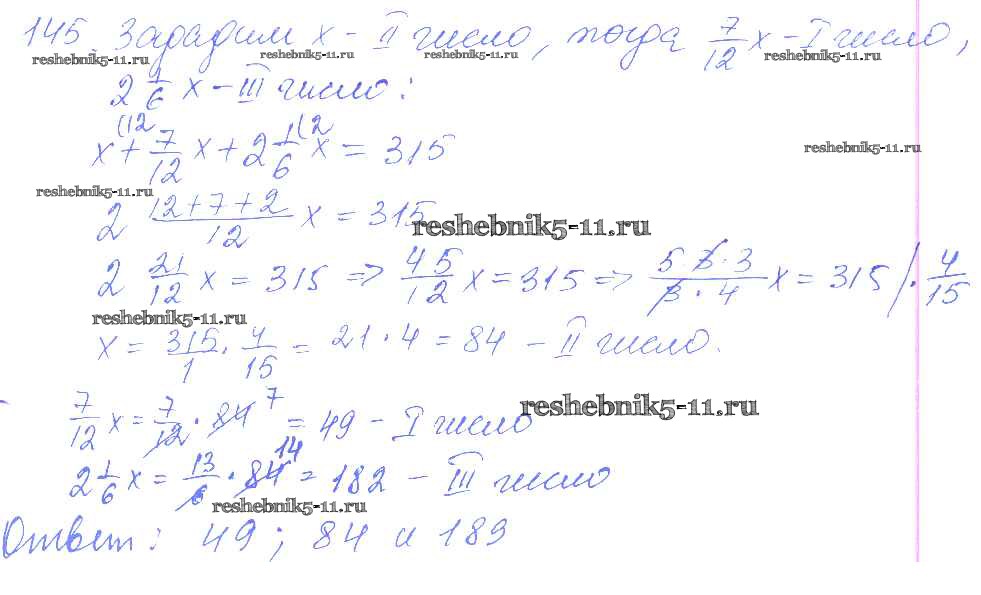 145 Зададим x - II число, тогда 7/12 x - I число,
reshebnik5-11.ru reshebnik5-11.ru reshebnik5-11.ru
2 1/6 x - III число:
x(12 + 7/12 x + 2 1/6(2 x = 315
reshebnik5-11.ru
reshebnik5-11.ru
2 (12+7+2)/12 x = 315
reshebnik5-11.ru
2 21/12 x = 315 => 45/12 x = 315 => (5 · 3 · 3)/(3 · 4) x = 315 | · 4/15
reshebnik5-11.ru
x = 315/1 · 4/15 = 21 · 4 = 84 - II число.
7/12 x = 7/12 · 84 7 = 49 - I число
reshebnik5-11.ru
2 1/6 x = 13/6 · 84 14 = 182 - III число
reshebnik5-11.ru
Ответ: 49; 84 и 189